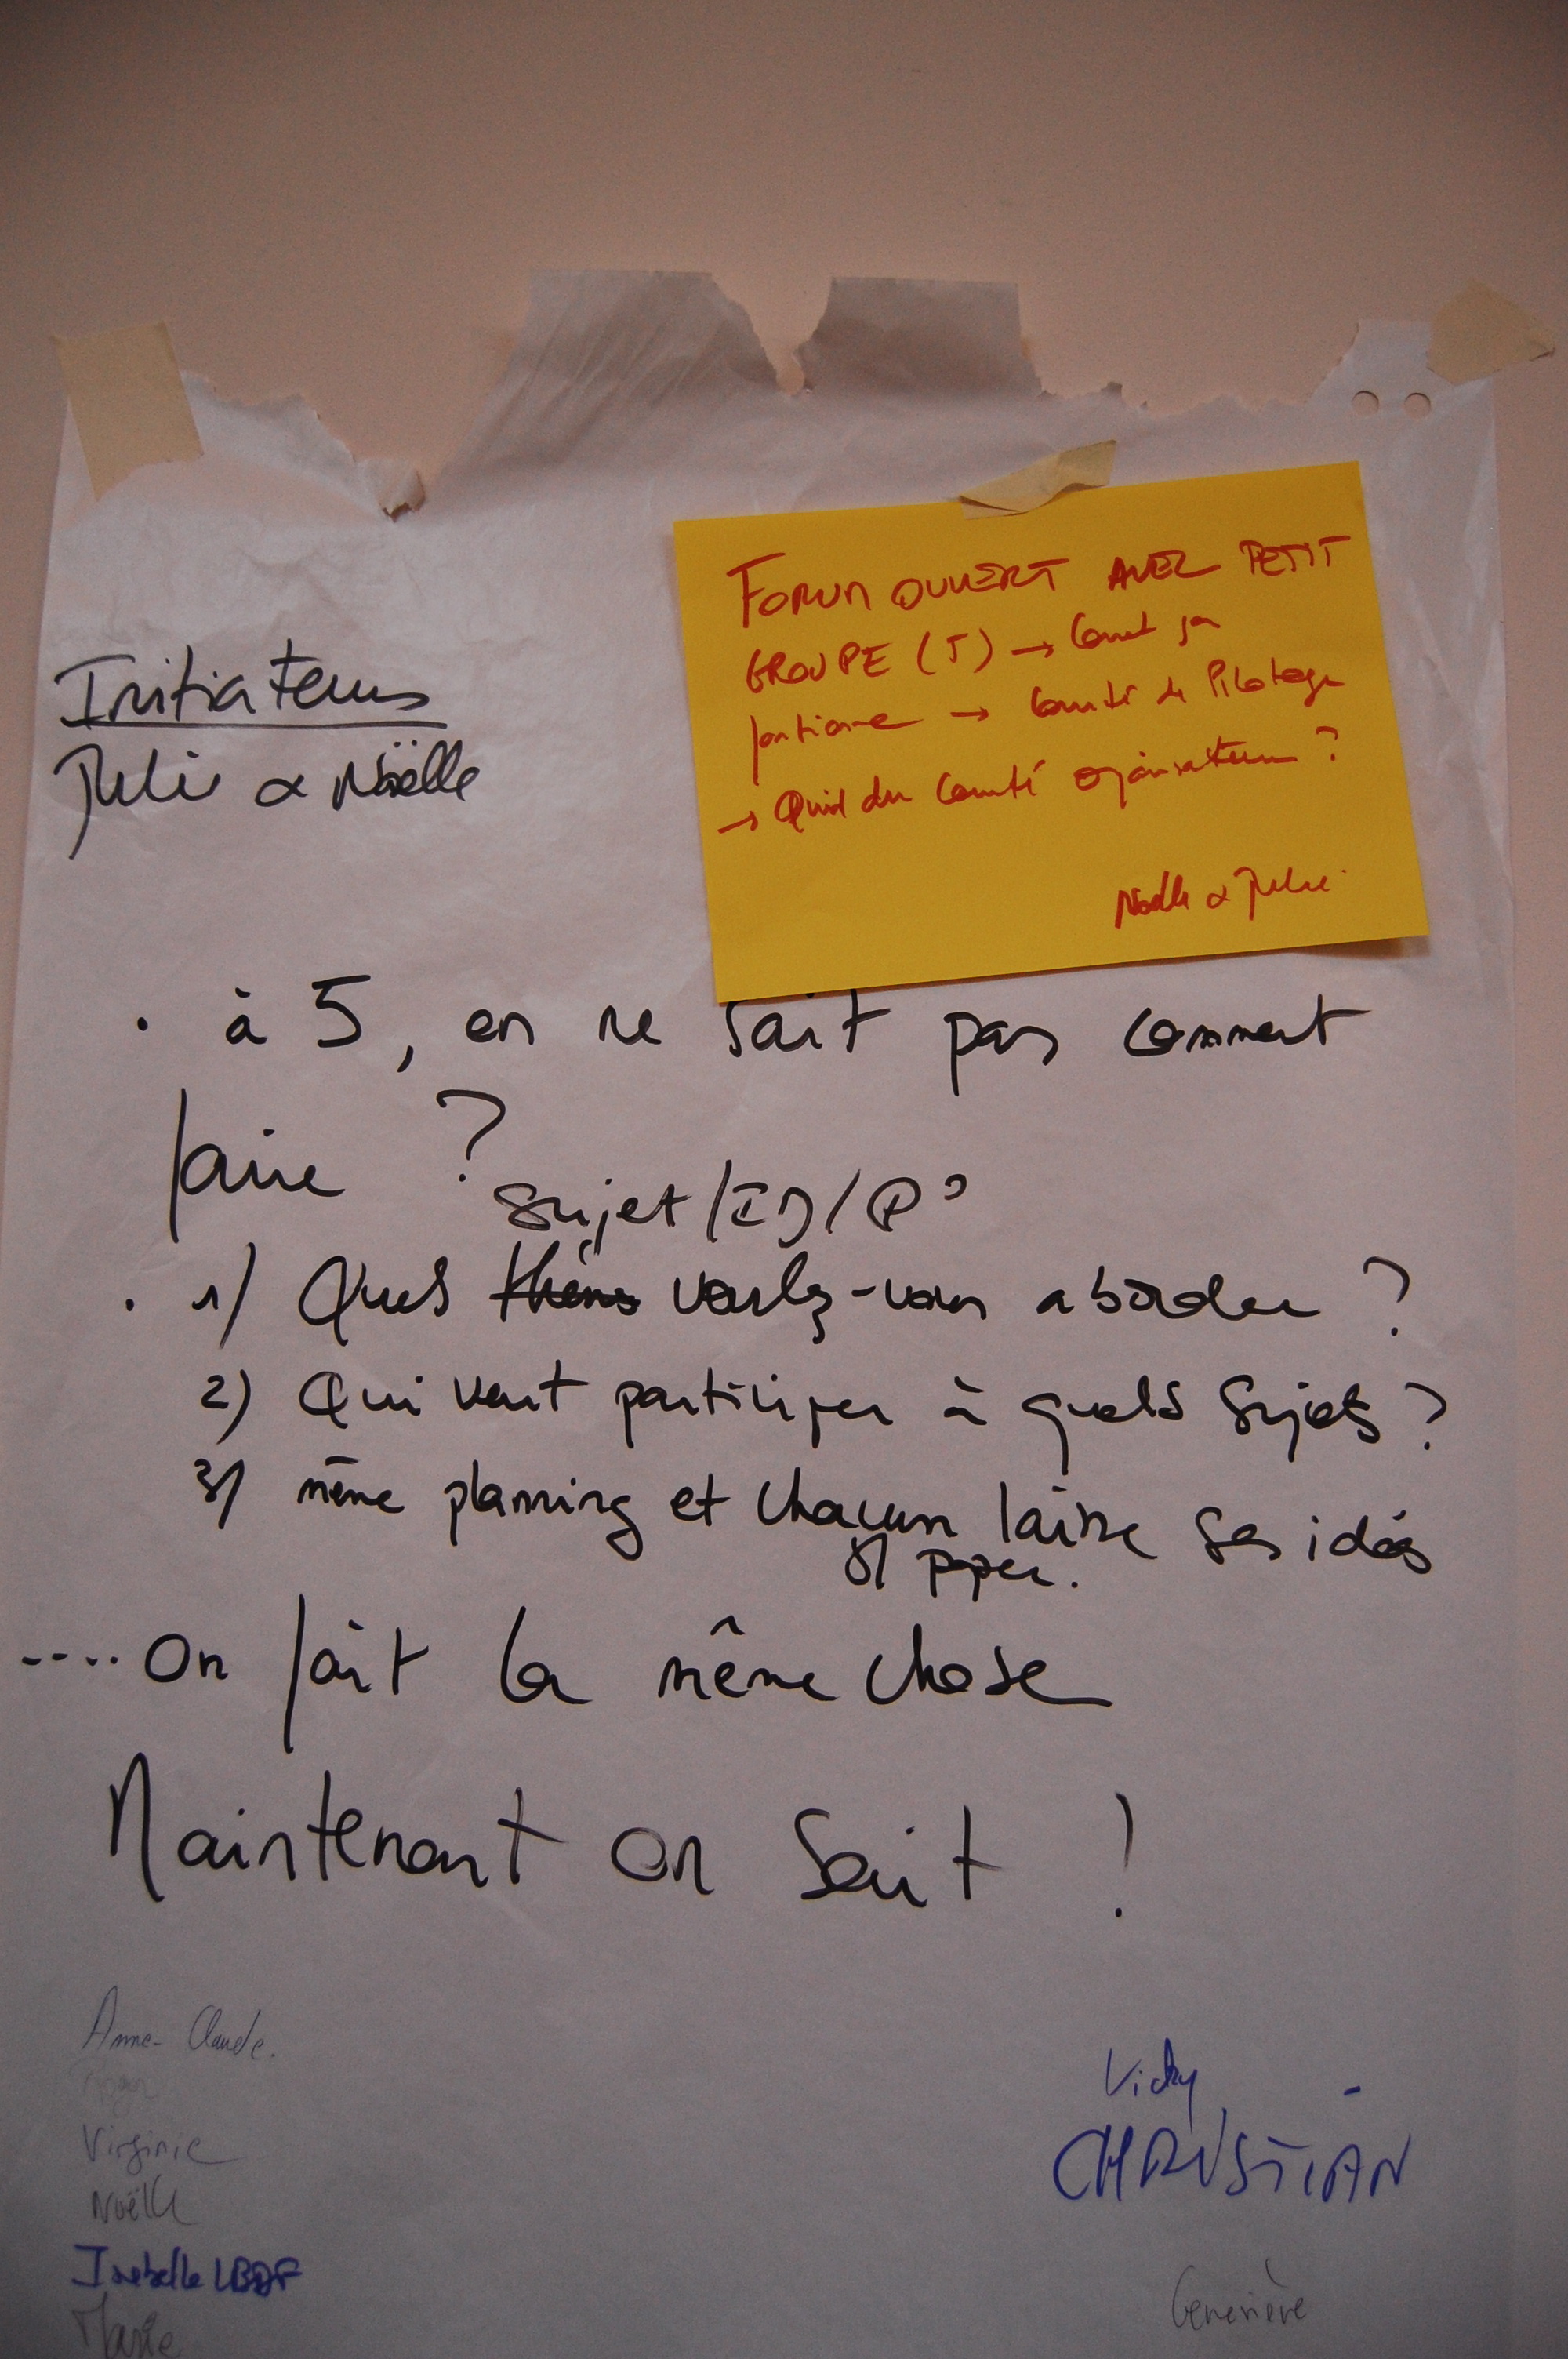 Initiateurs
Julie & Noëlle
FORUM OUVERT AVEC PETIT
GROUPE (5) → Comment ça
fonctionne → Comité de Pilotage
→ Quid du Comité organisateur ?
Noëlle & Julie
• à 5, on ne sait pas comment
faire ?
sujet/ID/Q°
• 1) Quels thèmes voulez-vous aborder ?
2) Qui veut participer à quels sujets ?
3) même planning et chacun laisse ses idées
s/ papier.
.... On fait la même chose
Maintenant on sait !
Anne-Claude.
Virginie
Noëlle
Isabelle LBDF
Marie
Vicky
CHRISTIAN
Geneviève